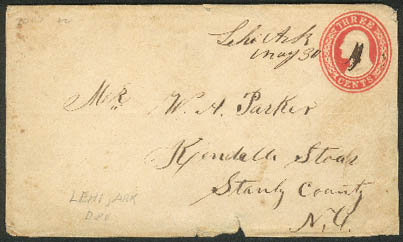 Lehi Ark
May 30
THREE
CENTS
Mr. W. A. Parker
Kendalls Store
Stanly County
N.C.
LEHI, ARK